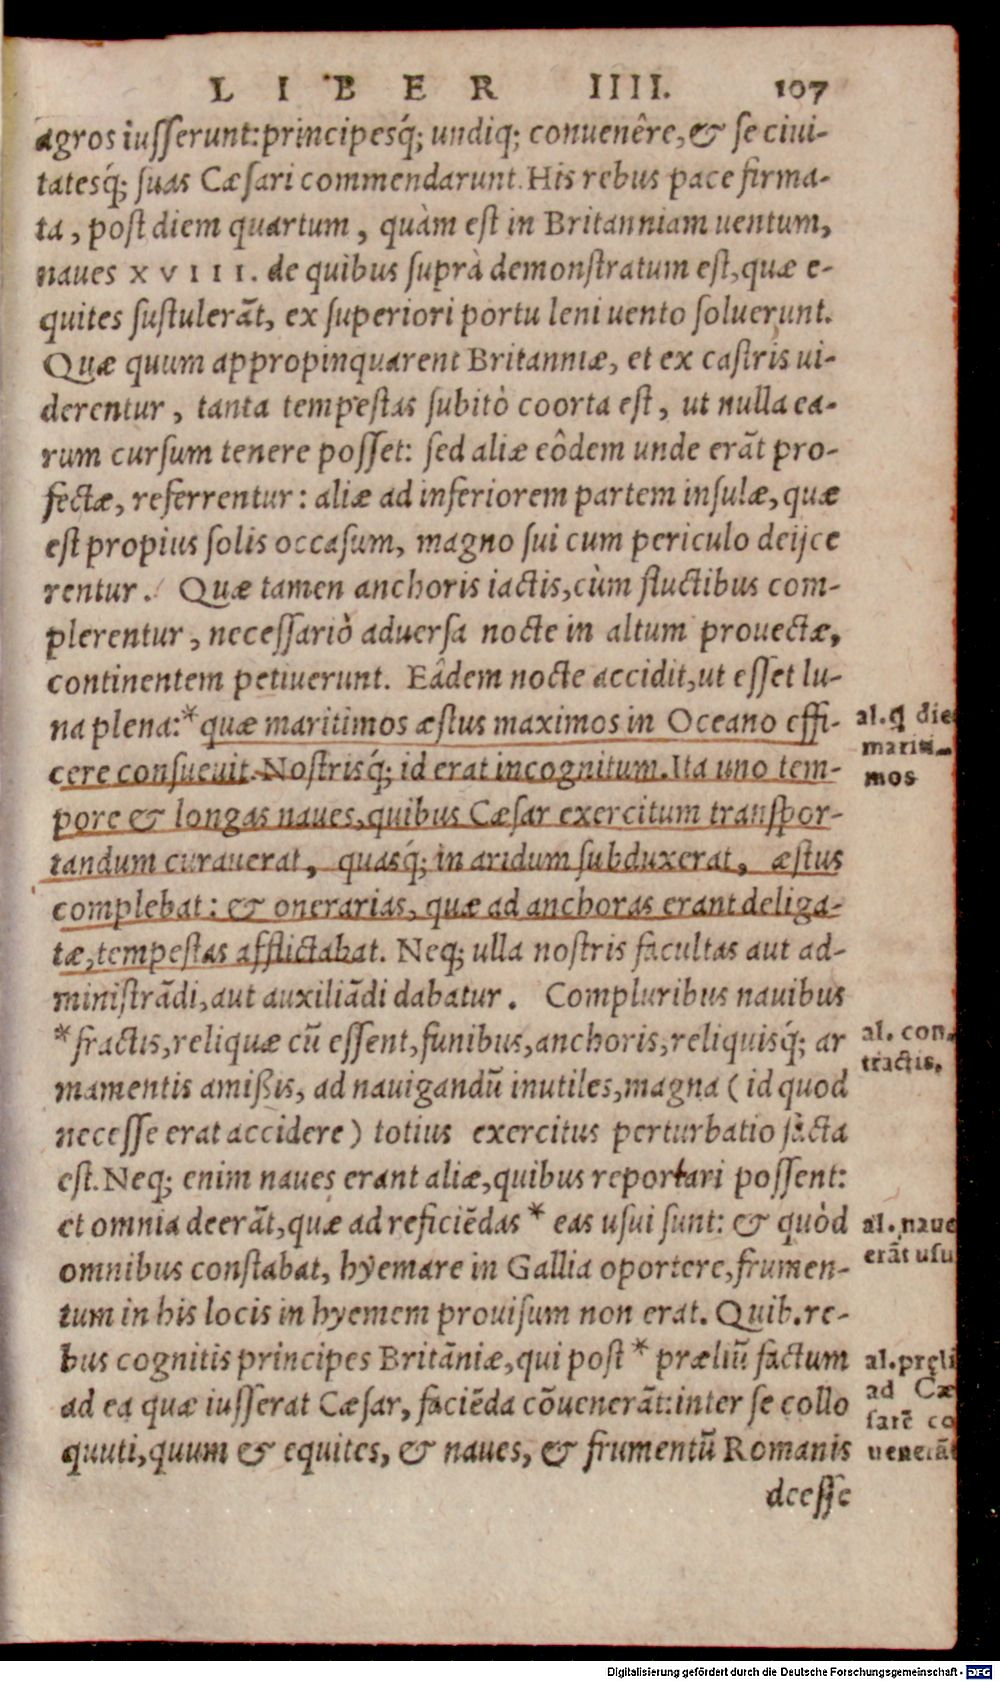 LIBER IIII. 107
agros iusserunt: principesq́; undiq; conuenêre, & se ciui-
tatesq́; suas Cæsari commendarunt. His rebus pace firma-
ta, post diem quartum, quàm est in Britanniam uentum,
naues XVIII. de quibus suprà demonstratum est, quæ e-
quites sustulerãt, ex superiori portu leni uento soluerunt.
Quæ quum appropinquarent Britanniæ, et ex castris ui-
derentur, tanta tempestas subitò coorta est, ut nulla ea-
rum cursum tenere posset: sed aliæ eôdem unde erãt pro-
fectæ, referrentur: aliæ ad inferiorem partem insulæ, quæ
est propius solis occasum, magno sui cum periculo deijce
rentur. Quæ tamen anchoris iactis, cùm fluctibus com-
plerentur, necessariò aduersa nocte in altum prouectæ,
continentem petiuerunt. Eâdem nocte accidit, ut esset lu-
na plena: * quæ maritimos æstus maximos in Oceano effi-
al. q die
mariti-
cere consueuit. Nostrisq́; id erat incognitum. Ita uno tem-
mos
pore & longas naues, quibus Cæsar exercitum transpor-
tandum curauerat, quasq́; in aridum subduxerat, æstus
complebat: & onerarias, quæ ad anchoras erant deliga-
tæ, tempestas afflictabat. Neq; ulla nostris facultas aut ad-
ministrãdi, aut auxiliãdi dabatur. Compluribus nauibus
* fractis, reliquæ cũ essent, funibus, anchoris, reliquisq́; ar
al. con-
tractis.
mamentis amißis, ad nauigandũ inutiles, magna (id quod
necesse erat accidere) totius exercitus perturbatio facta
est. Neq; enim naues erant aliæ, quibus reportari possent:
et omnia deerãt, quæ ad reficiẽdas * eas usui sunt: & quòd
al. naue
erãt usu
omnibus constabat, hyemare in Gallia oportere, frumen-
tum in his locis in hyemem prouisum non erat. Quib. re-
bus cognitis principes Britãniæ, qui post * præliũ factum
al. pręli
ad Cæ
ad ea quæ iusserat Cæsar, faciẽda cõuenerãt: inter se collo
sarẽ co
quuti, quum & equites, & naues, & frumentũ Romanis
uenerãt
deesse
Digitalisierung gefördert durch die Deutsche Forschungsgemeinschaft - DFG